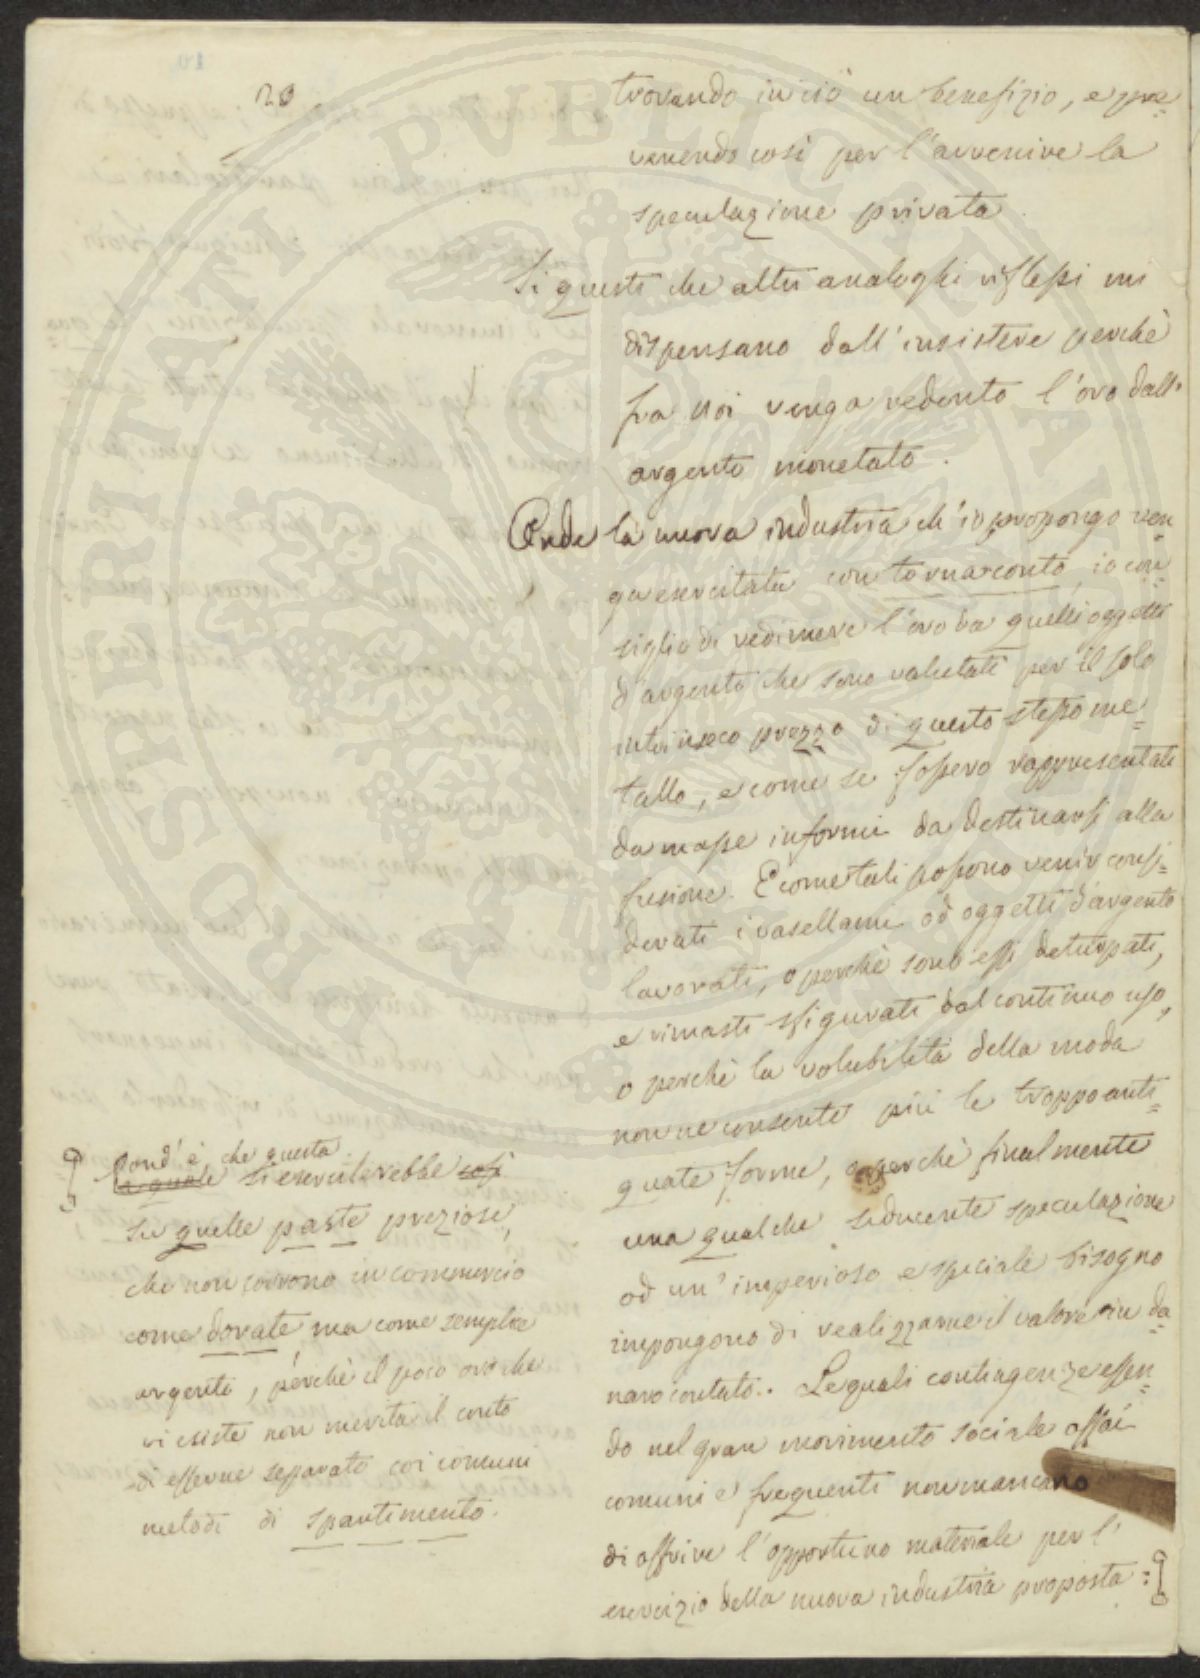 20
trovando in ciò un benefizio, e pre=
venendo così per l'avvenire la
speculazione privata.
Si questi che altri analoghi riflessi mi
dispensano dall'insistere perchè
fra noi venga redento l'oro dall'
argento monetato.
Onde la nuova industria ch'io propongo ven
ga esercitata con tornaconto, io con=
siglio di redimere l'oro da quelli oggetti
d'argento che sono valutati per il solo
intrinseco prezzo di questo stesso me=
tallo, e come se fossero rappresentati
da masse informi da destinarsi alla
fusione. E come tali possono venir consi=
derati i vasellami od oggetti d'argento
lavorati, o perchè sono essi deturpati,
e rimasti sfigurati dal continuo uso,
o perchè la volubilità della moda
non ne consente più le troppo anti=
quate forme, o perchè finalmente
una qualche seducente speculazione
od un'imperioso e speciale bisogno
impongono di realizzarne il valore in da=
naro contato. Le quali contingenze essen=
do nel gran movimento sociale assai
comuni e frequenti non mancano
di offrire l'opportuno materiale per l'
esercizio della nuova industria proposta:
Dond'è che questa
la quale si eserciterebbe così
su quelle paste preziose,
che non corrono in commercio
come dorate, ma come semplice
argento, perchè il poco oro che
vi esiste non merita il conto
di esserne separato coi comuni
metodi di spartimento.
PROSPERITATI PUBLICAE AUGENDAE